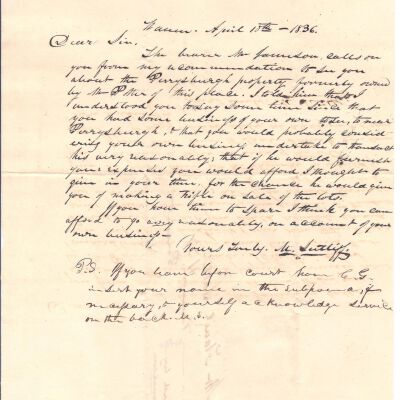 Warren. April 15th - 1836.
Dear Sir,
The bearer Mr Jamison, calls on
you from my recommendation to see you
about the Perrysburgh property formerly owned
by Mr P of this place. I told him that I
understood you to say some time since that
you had some business of your own to, to near
Perrysburgh, & that you would probably consid-
ering your own business undertake to transact
his very reasonably; that if he would furnish
your expenses you would afford I thought to
give in your time, for the chance he would give
you of making a trifle on sale of the lots.
If you have time to spare I think you can
afford to go very reasonably, on account of your
own business -
Yours Truly. M. Sutliff
P.S. If you have upon court from C. G.
insert your name in the subpoena, if
necessary, & yourself acknowledge service
on the back. M. S.